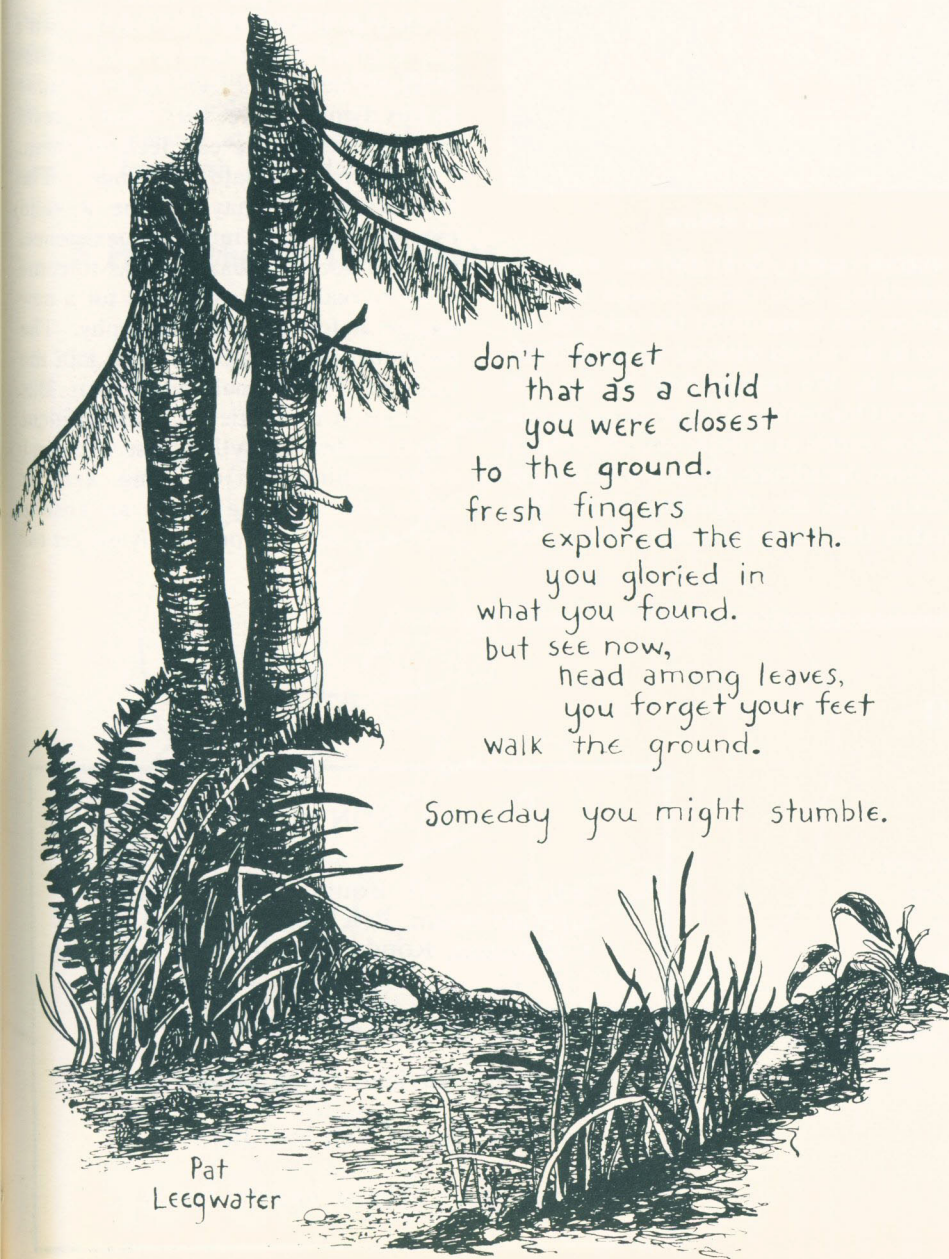 don't forget
that as a child
you were closest
to the ground.
fresh fingers
explored the earth.
you gloried in
what you found.
but see now,
head among leaves,
you forget your feet
walk the ground.
Someday you might stumble.
Pat
Leegwater